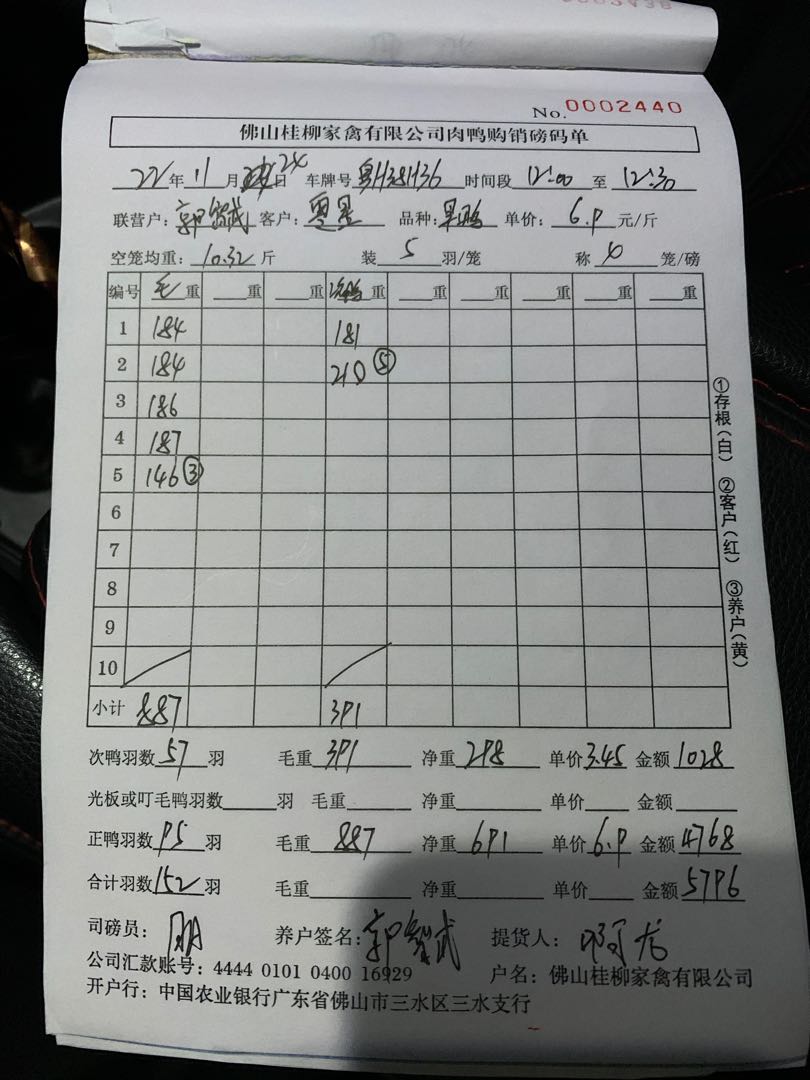 No. 0002440
佛山桂柳家禽有限公司肉鸭购销磅码单
22年11月24日 车牌号 粤H38H36 时间段 12:00 至 12:30
联营户: 郭智武 客户: 品种: 单价: 6.9 元/斤
空笼均重: 10.32 斤 装 5 羽/笼 称 4 笼/磅
编号 毛重 重 重 次鸭重 重 重 重 重
1 184 181
2 184 210 ⑤
3 186
4 187
5 146 ③
6
7
8
9
10
小计 887 391
①存根(白) ②客户(红) ③养户(黄)
次鸭羽数 57 羽 毛重 391 净重 298 单价 3.45 金额 1028
光板或叮毛鸭羽数 羽 毛重 净重 单价 金额
正鸭羽数 95 羽 毛重 887 净重 691 单价 6.9 金额 4768
合计羽数 152 羽 毛重 净重 单价 金额 5796
司磅员: 养户签名: 郭智武 提货人:
公司汇款账号: 4444 0101 0400 16929 户名: 佛山桂柳家禽有限公司
开户行: 中国农业银行广东省佛山市三水区三水支行